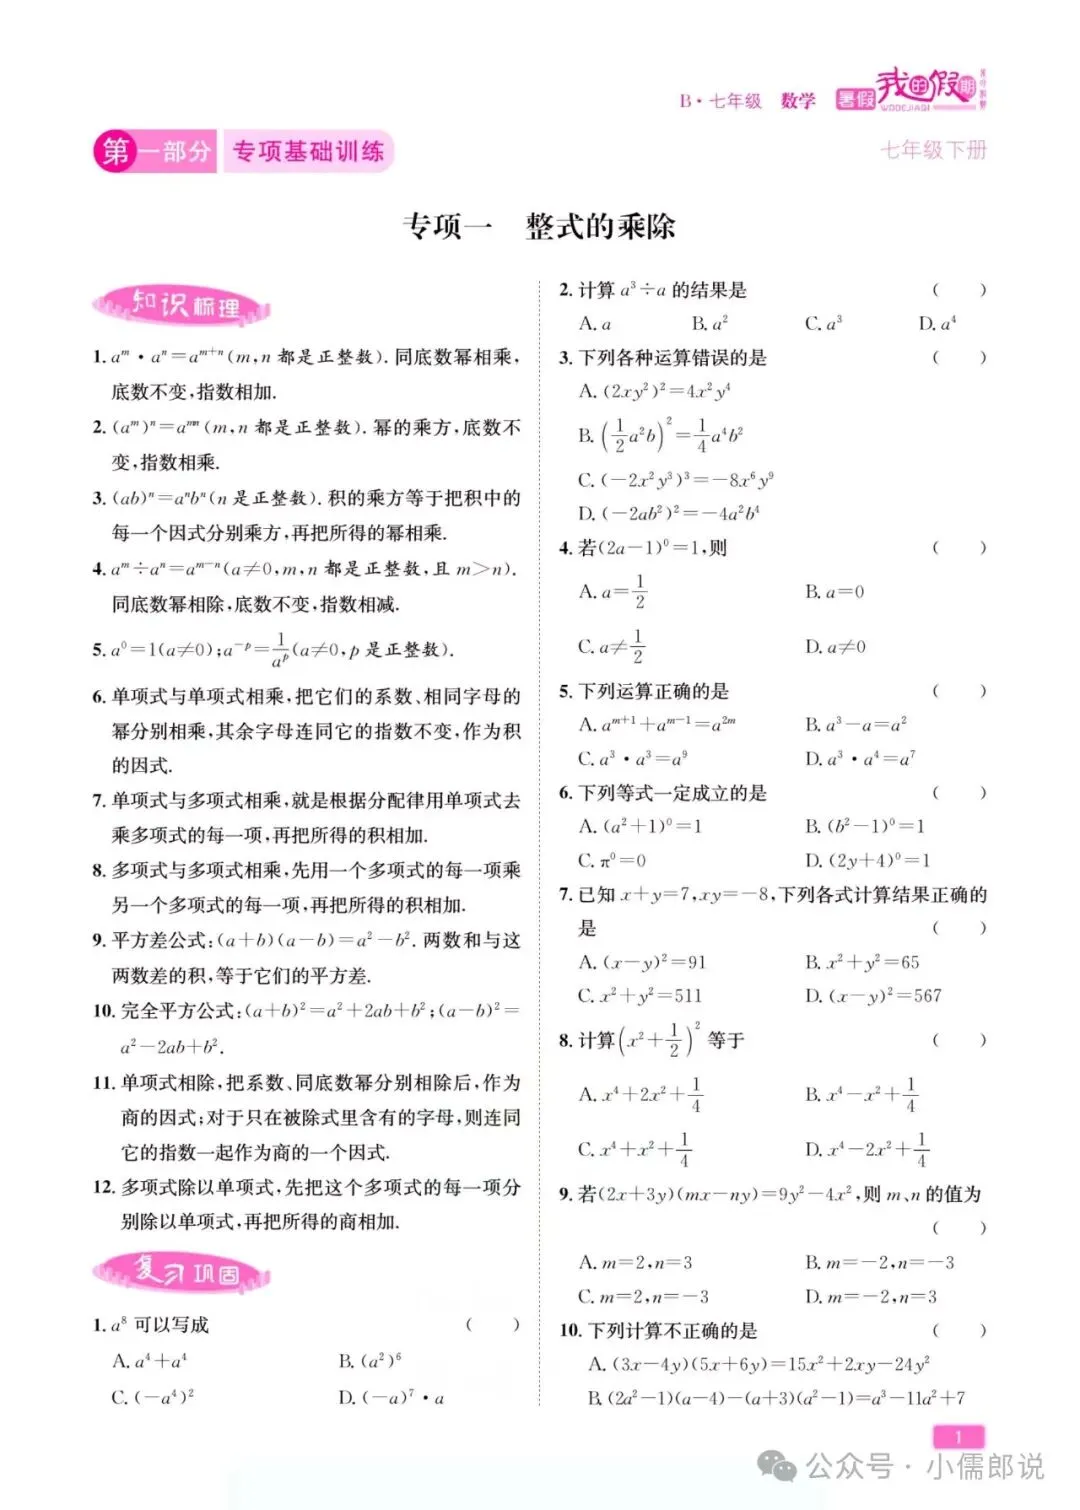 B·七年级 数学 暑假 我的假期
WODEJIAQI
第一部分 专项基础训练
七年级下册
专项一 整式的乘除
知识梳理
1. aᵐ·aⁿ=aᵐ⁺ⁿ(m,n都是正整数).同底数幂相乘,
底数不变,指数相加.
2. (aᵐ)ⁿ=aᵐⁿ(m,n都是正整数).幂的乘方,底数不
变,指数相乘.
3. (ab)ⁿ=aⁿbⁿ(n是正整数).积的乘方等于把积中的
每一个因式分别乘方,再把所得的幂相乘.
4. aᵐ÷aⁿ=aᵐ⁻ⁿ(a≠0,m,n都是正整数,且m>n).
同底数幂相除,底数不变,指数相减.
5. a⁰=1(a≠0);a⁻ᵖ=1/aᵖ(a≠0,p是正整数).
6. 单项式与单项式相乘,把它们的系数、相同字母的
幂分别相乘,其余字母连同它的指数不变,作为积
的因式.
7. 单项式与多项式相乘,就是根据分配律用单项式去
乘多项式的每一项,再把所得的积相加.
8. 多项式与多项式相乘,先用一个多项式的每一项乘
另一个多项式的每一项,再把所得的积相加.
9. 平方差公式:(a+b)(a-b)=a²-b².两数和与这
两数差的积,等于它们的平方差.
10. 完全平方公式:(a+b)²=a²+2ab+b²;(a-b)²=
a²-2ab+b².
11. 单项式相除,把系数、同底数幂分别相除后,作为
商的因式;对于只在被除式里含有的字母,则连同
它的指数一起作为商的一个因式.
12. 多项式除以单项式,先把这个多项式的每一项分
别除以单项式,再把所得的商相加.
复习巩固
1. a⁸可以写成 ( )
A. a⁴+a⁴ B. (a²)⁶
C. (-a⁴)² D. (-a)⁷·a
2. 计算a³÷a的结果是 ( )
A. a B. a² C. a³ D. a⁴
3. 下列各种运算错误的是 ( )
A. (2xy²)²=4x²y⁴
B. (1/2a²b)²=1/4a⁴b²
C. (-2x²y³)³=-8x⁶y⁹
D. (-2ab²)²=-4a²b⁴
4. 若(2a-1)⁰=1,则 ( )
A. a=1/2 B. a=0
C. a≠1/2 D. a≠0
5. 下列运算正确的是 ( )
A. aᵐ⁺¹+aᵐ⁻¹=a²ᵐ B. a³-a=a²
C. a³·a³=a⁹ D. a³·a⁴=a⁷
6. 下列等式一定成立的是 ( )
A. (a²+1)⁰=1 B. (b²-1)⁰=1
C. π⁰=0 D. (2y+4)⁰=1
7. 已知x+y=7,xy=-8,下列各式计算结果正确的
是 ( )
A. (x-y)²=91 B. x²+y²=65
C. x²+y²=511 D. (x-y)²=567
8. 计算(x²+1/2)²等于 ( )
A. x⁴+2x²+1/4 B. x⁴-x²+1/4
C. x⁴+x²+1/4 D. x⁴-2x²+1/4
9. 若(2x+3y)(mx-ny)=9y²-4x²,则m、n的值为
( )
A. m=2,n=3 B. m=-2,n=-3
C. m=2,n=-3 D. m=-2,n=3
10. 下列计算不正确的是 ( )
A. (3x-4y)(5x+6y)=15x²+2xy-24y²
B. (2a²-1)(a-4)-(a+3)(a²-1)=a³-11a²+7
1
公众号·小儒郎说